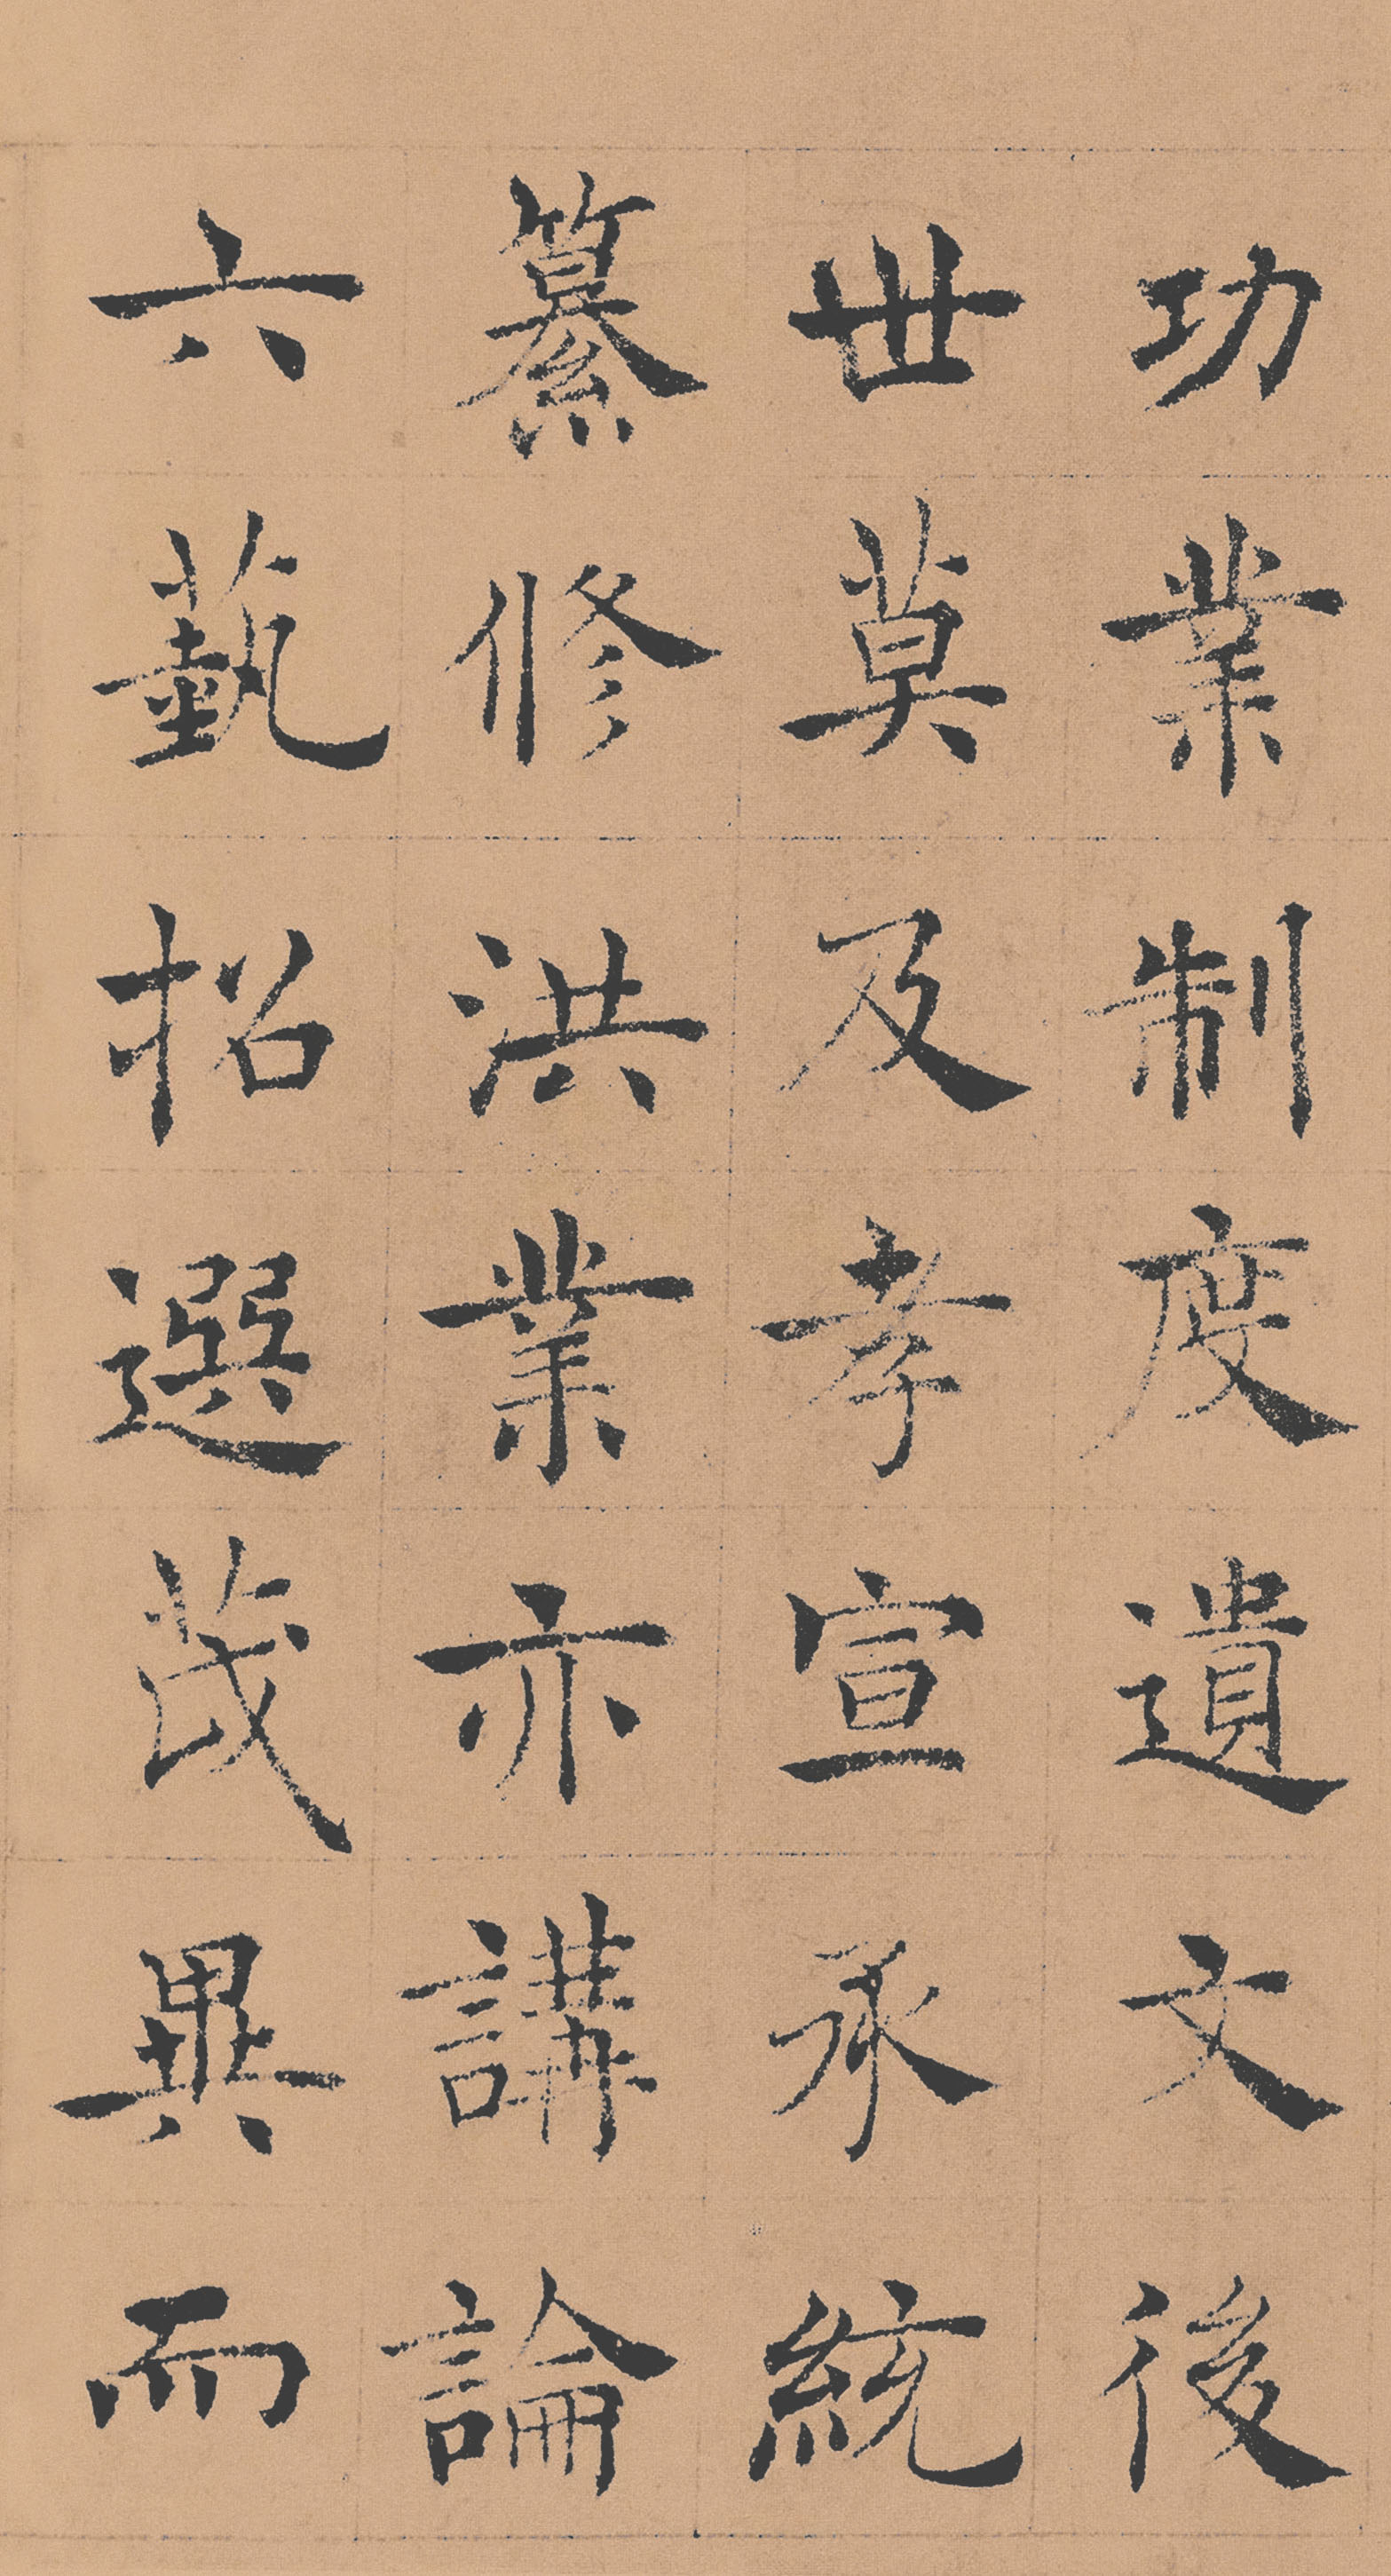 功業制度遺文後
世莫及孝宣承統
纂修洪業亦講論
六藝招選茂異而